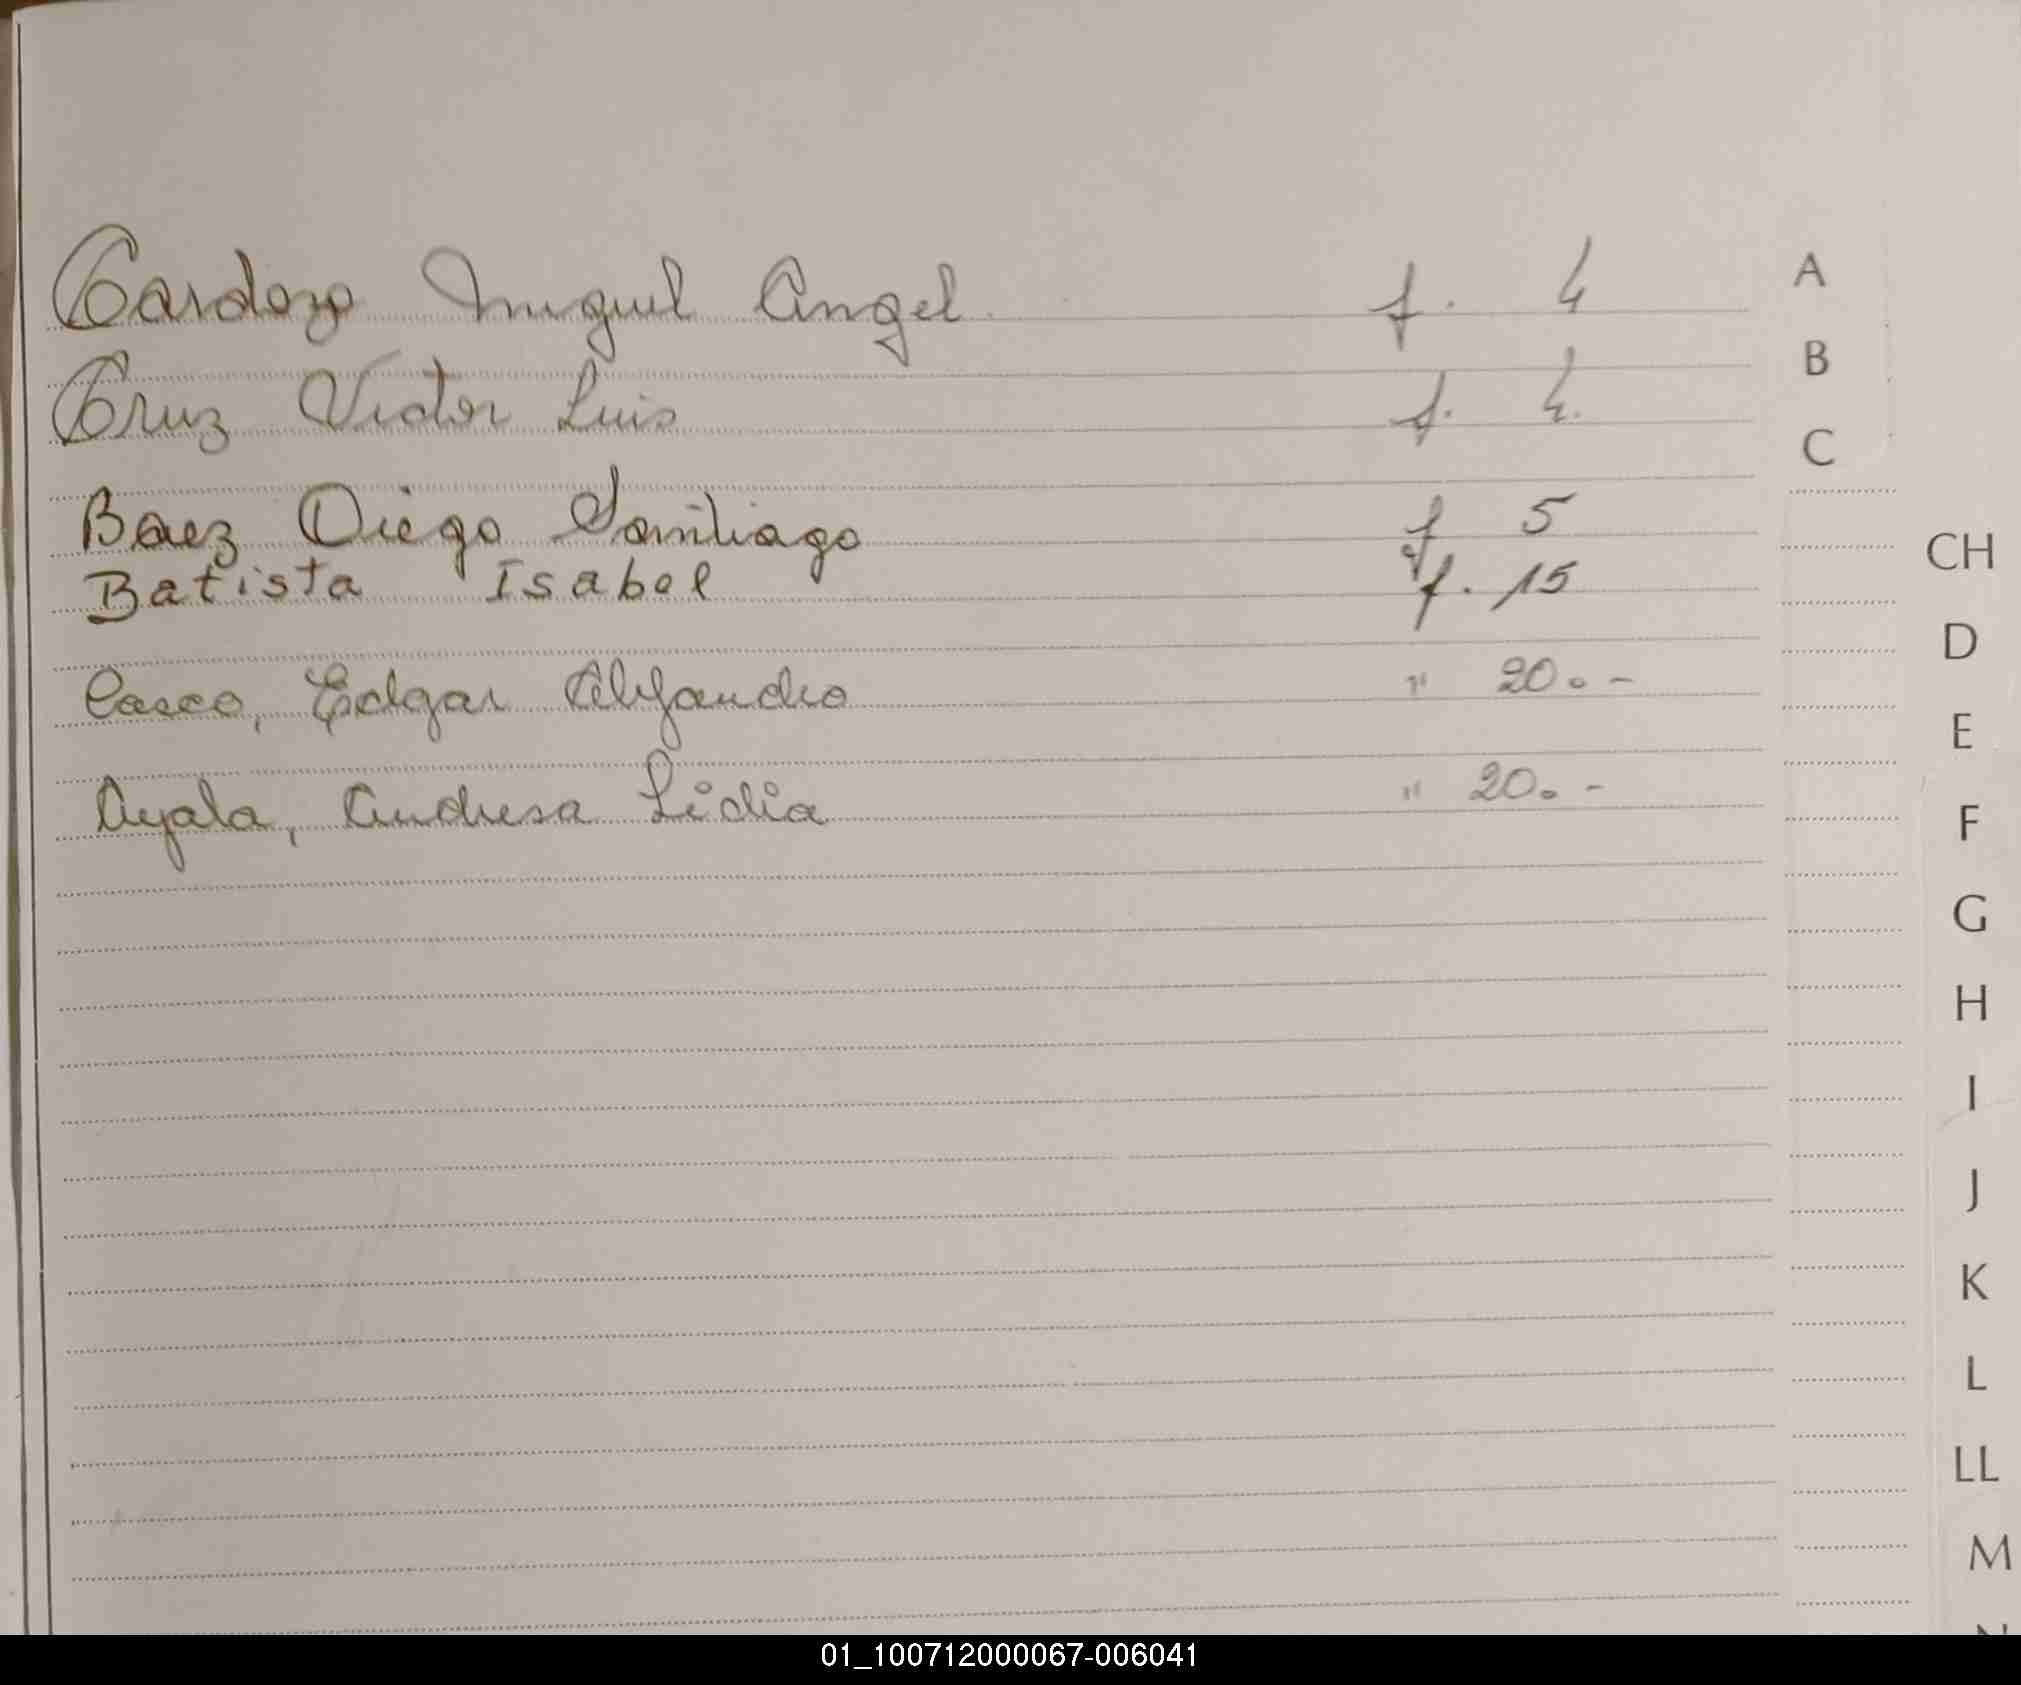 Cardozo Miguel Angel. f. 4
Cruz Victor Luis f. 4.
Baez Diego Santiago f 5
Batista Isabel f. 15
Casco, Edgar Alejandro " 20.-
Ayala, Andresa Lidia " 20.-
A
B
C
CH
D
E
F
G
H
I
J
K
L
LL
M
N
01_100712000067-006041